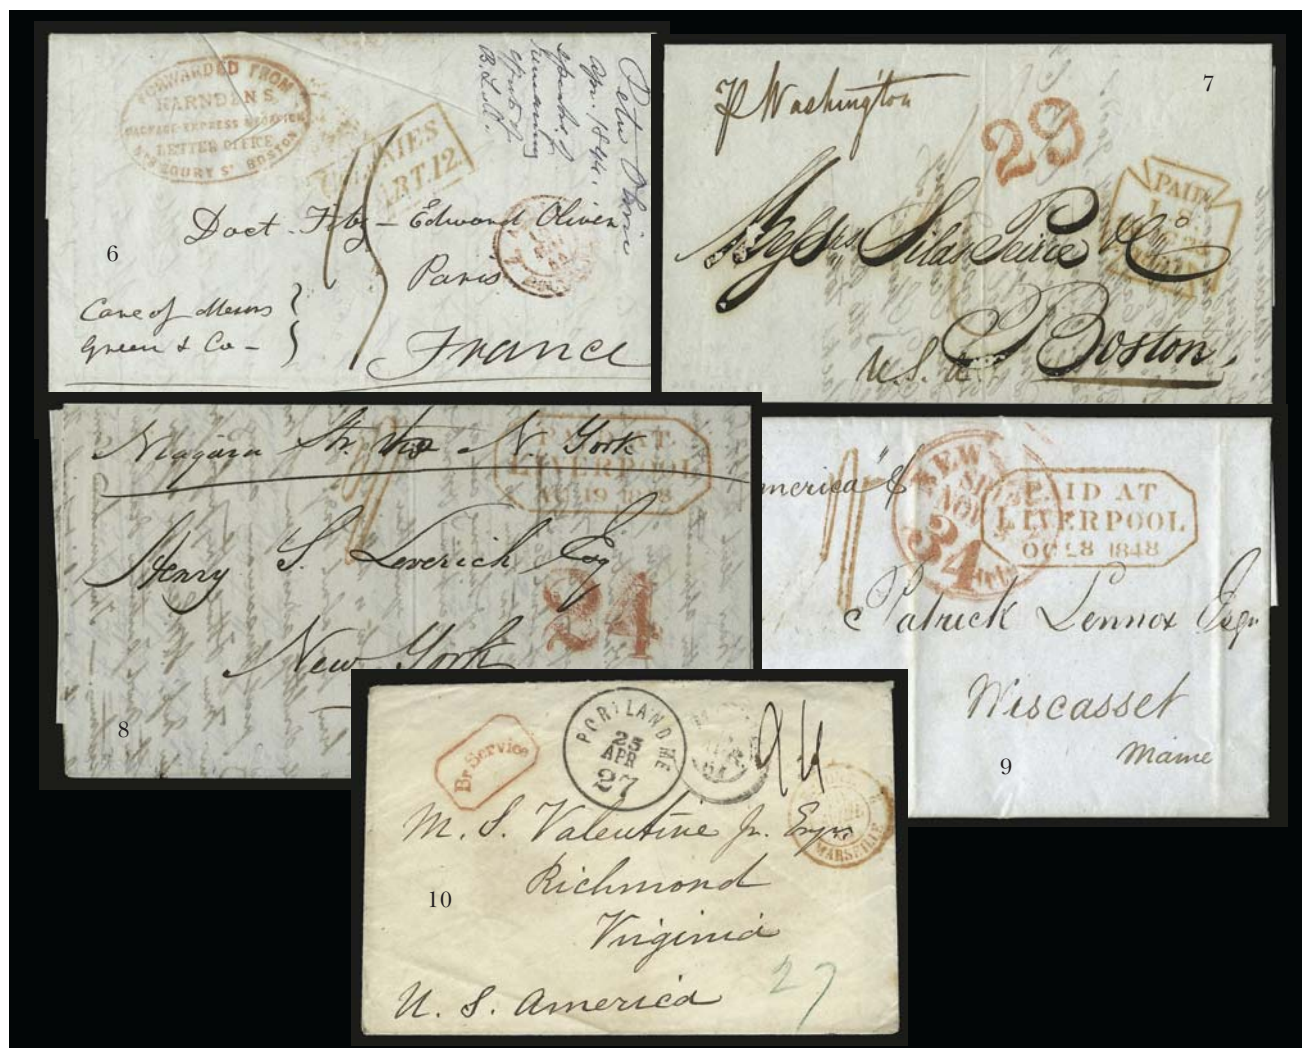 FORWARDED FROM
HARNDEN'S
PACKAGE EXPRESS & FOREIGN
LETTER OFFICE
8 COURT St BOSTON
ART. 12.
Apr. 1844.
Doct. Fitz - Edward Oliver
Paris
6
Care of Messrs
Green & Co -
France
7
p Washington
29
PAID
Messrs Silas Peirce & Co
Boston,
U.S. A
Niagara Str. via N. York
PAID AT
LIVERPOOL
AU 19 1848
Henry S. Leverich Esq
24
New York
8
merica
NEW
NOV
34
PAID AT
LIVERPOOL
OC 28 1848
Patrick Lennox Esqr
Wiscasset
9
Maine
Br Service
PORTLAND ME
25
APR
27
24
MARSEILLE
M. S. Valentine Jr. Esqre
Richmond
10
Virginia
27
U. S. America